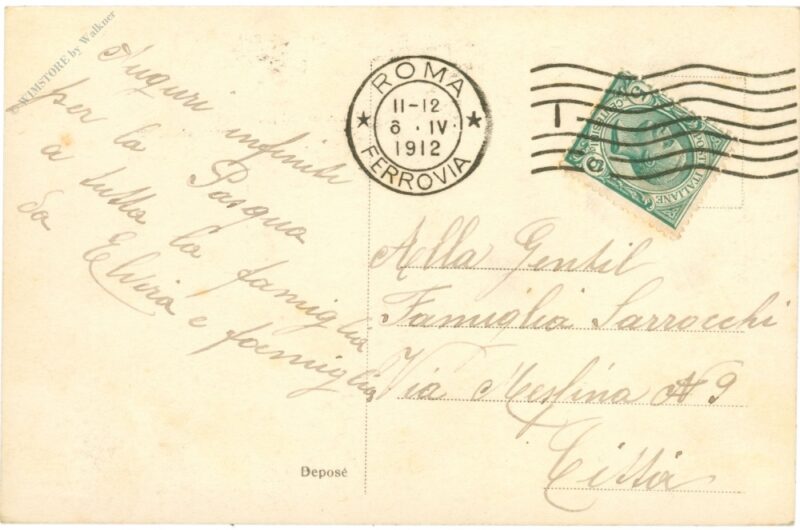 © WIMSTORE by Walkner
Auguri infiniti
per la Pasqua
a tutta la famiglia
da Elvira e famiglia
ROMA
11-12
8 · IV
1912
FERROVIA
1
POSTE ITALIANE
5
5
Alla Gentil
Famiglia Sarrocchi
Via Messina N 9
Città
Deposé